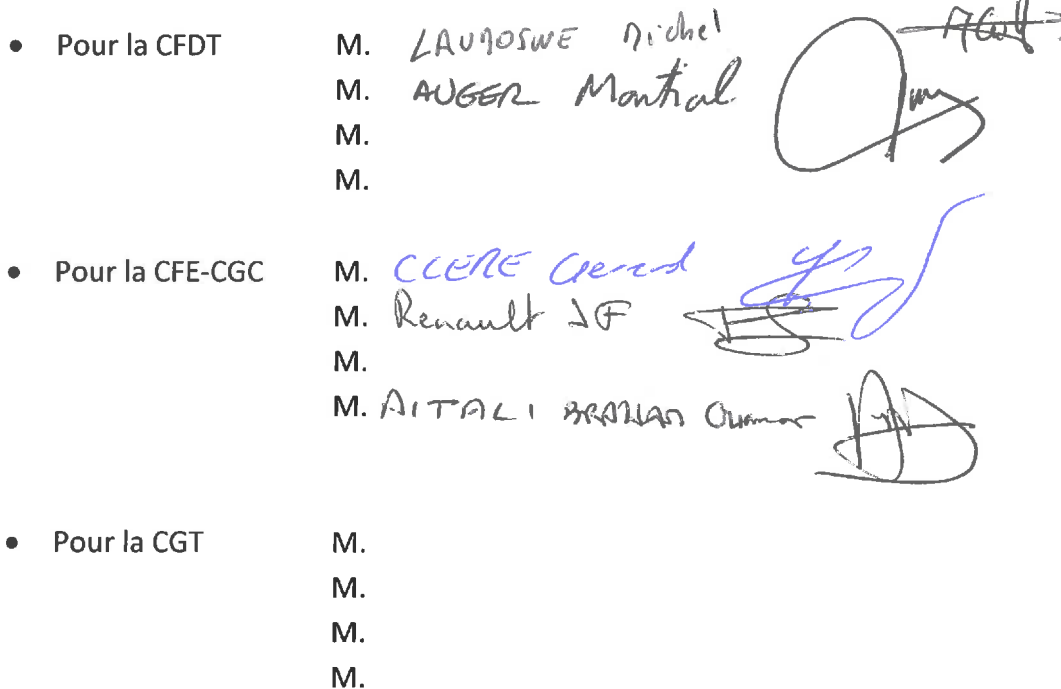 • Pour la CFDT M. Michel
M. AUGER Martial
M.
M.
• Pour la CFE-CGC M. CLERE Gerard
M. Renault JF
M.
M. AITALI
• Pour la CGT M.
M.
M.
M.